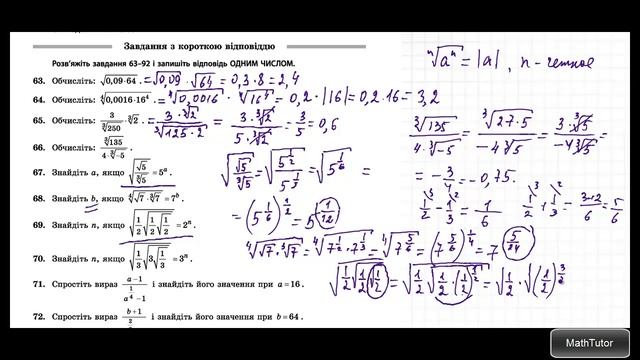 Завдання з короткою відповіддю
Розв'яжіть завдання 63–92 і запишіть відповідь ОДНИМ ЧИСЛОМ.
63. Обчисліть: √(0,09·64). = √0,09 · √64 = 0,3·8 = 2,4
64. Обчисліть: ⁴√(0,0016·16⁴) = ⁴√0,0016 · ⁴√16⁴ = 0,2·|16| = 0,2·16 = 3,2
65. Обчисліть: 3/³√250 · ³√2. = 3·³√2/³√(125·2) = 3·³√2/(5·³√2) = 3/5 = 0,6
66. Обчисліть: ³√135/(4·³√-5).
67. Знайдіть a, якщо √(√5/³√5) = 5ᵃ.
68. Знайдіть b, якщо ⁴√(√7·³√7) = 7ᵇ.
69. Знайдіть n, якщо √(1/2√(1/2√(1/2))) = 2ⁿ.
70. Знайдіть n, якщо √(1/3√(3√(1/3))) = 3ⁿ.
71. Спростіть вираз (a−1)/(a^(1/4)−1) і знайдіть його значення при a=16.
72. Спростіть вираз b+1/2 і знайдіть його значення при b=64.
ⁿ√aⁿ = |a|, n - четное
³√135/(4·³√-5) = ³√(27·5)/(-4³√5) = 3·³√5/(-4³√5) =
= -3/4 = -0,75.
√(√5/³√5) = √(5^(1/2)/5^(1/3)) = √(5^(1/6)) =
= (5^(1/6))^(1/2) = 5^(1/12)
1/2 - 1/3 = 1/6
1/2 + 1/3 = (3+2)/6 = 5/6
⁴√(√7·³√7) = ⁴√(7^(1/2)·7^(1/3)) = ⁴√(7^(5/6)) = (7^(5/6))^(1/4) = 7^(5/24)
√(1/2√(1/2√(1/2))) = √(1/2√(1/2·(1/2)^(1/2))) = √(1/2·√((1/2)^(3/2)))
MathTutor